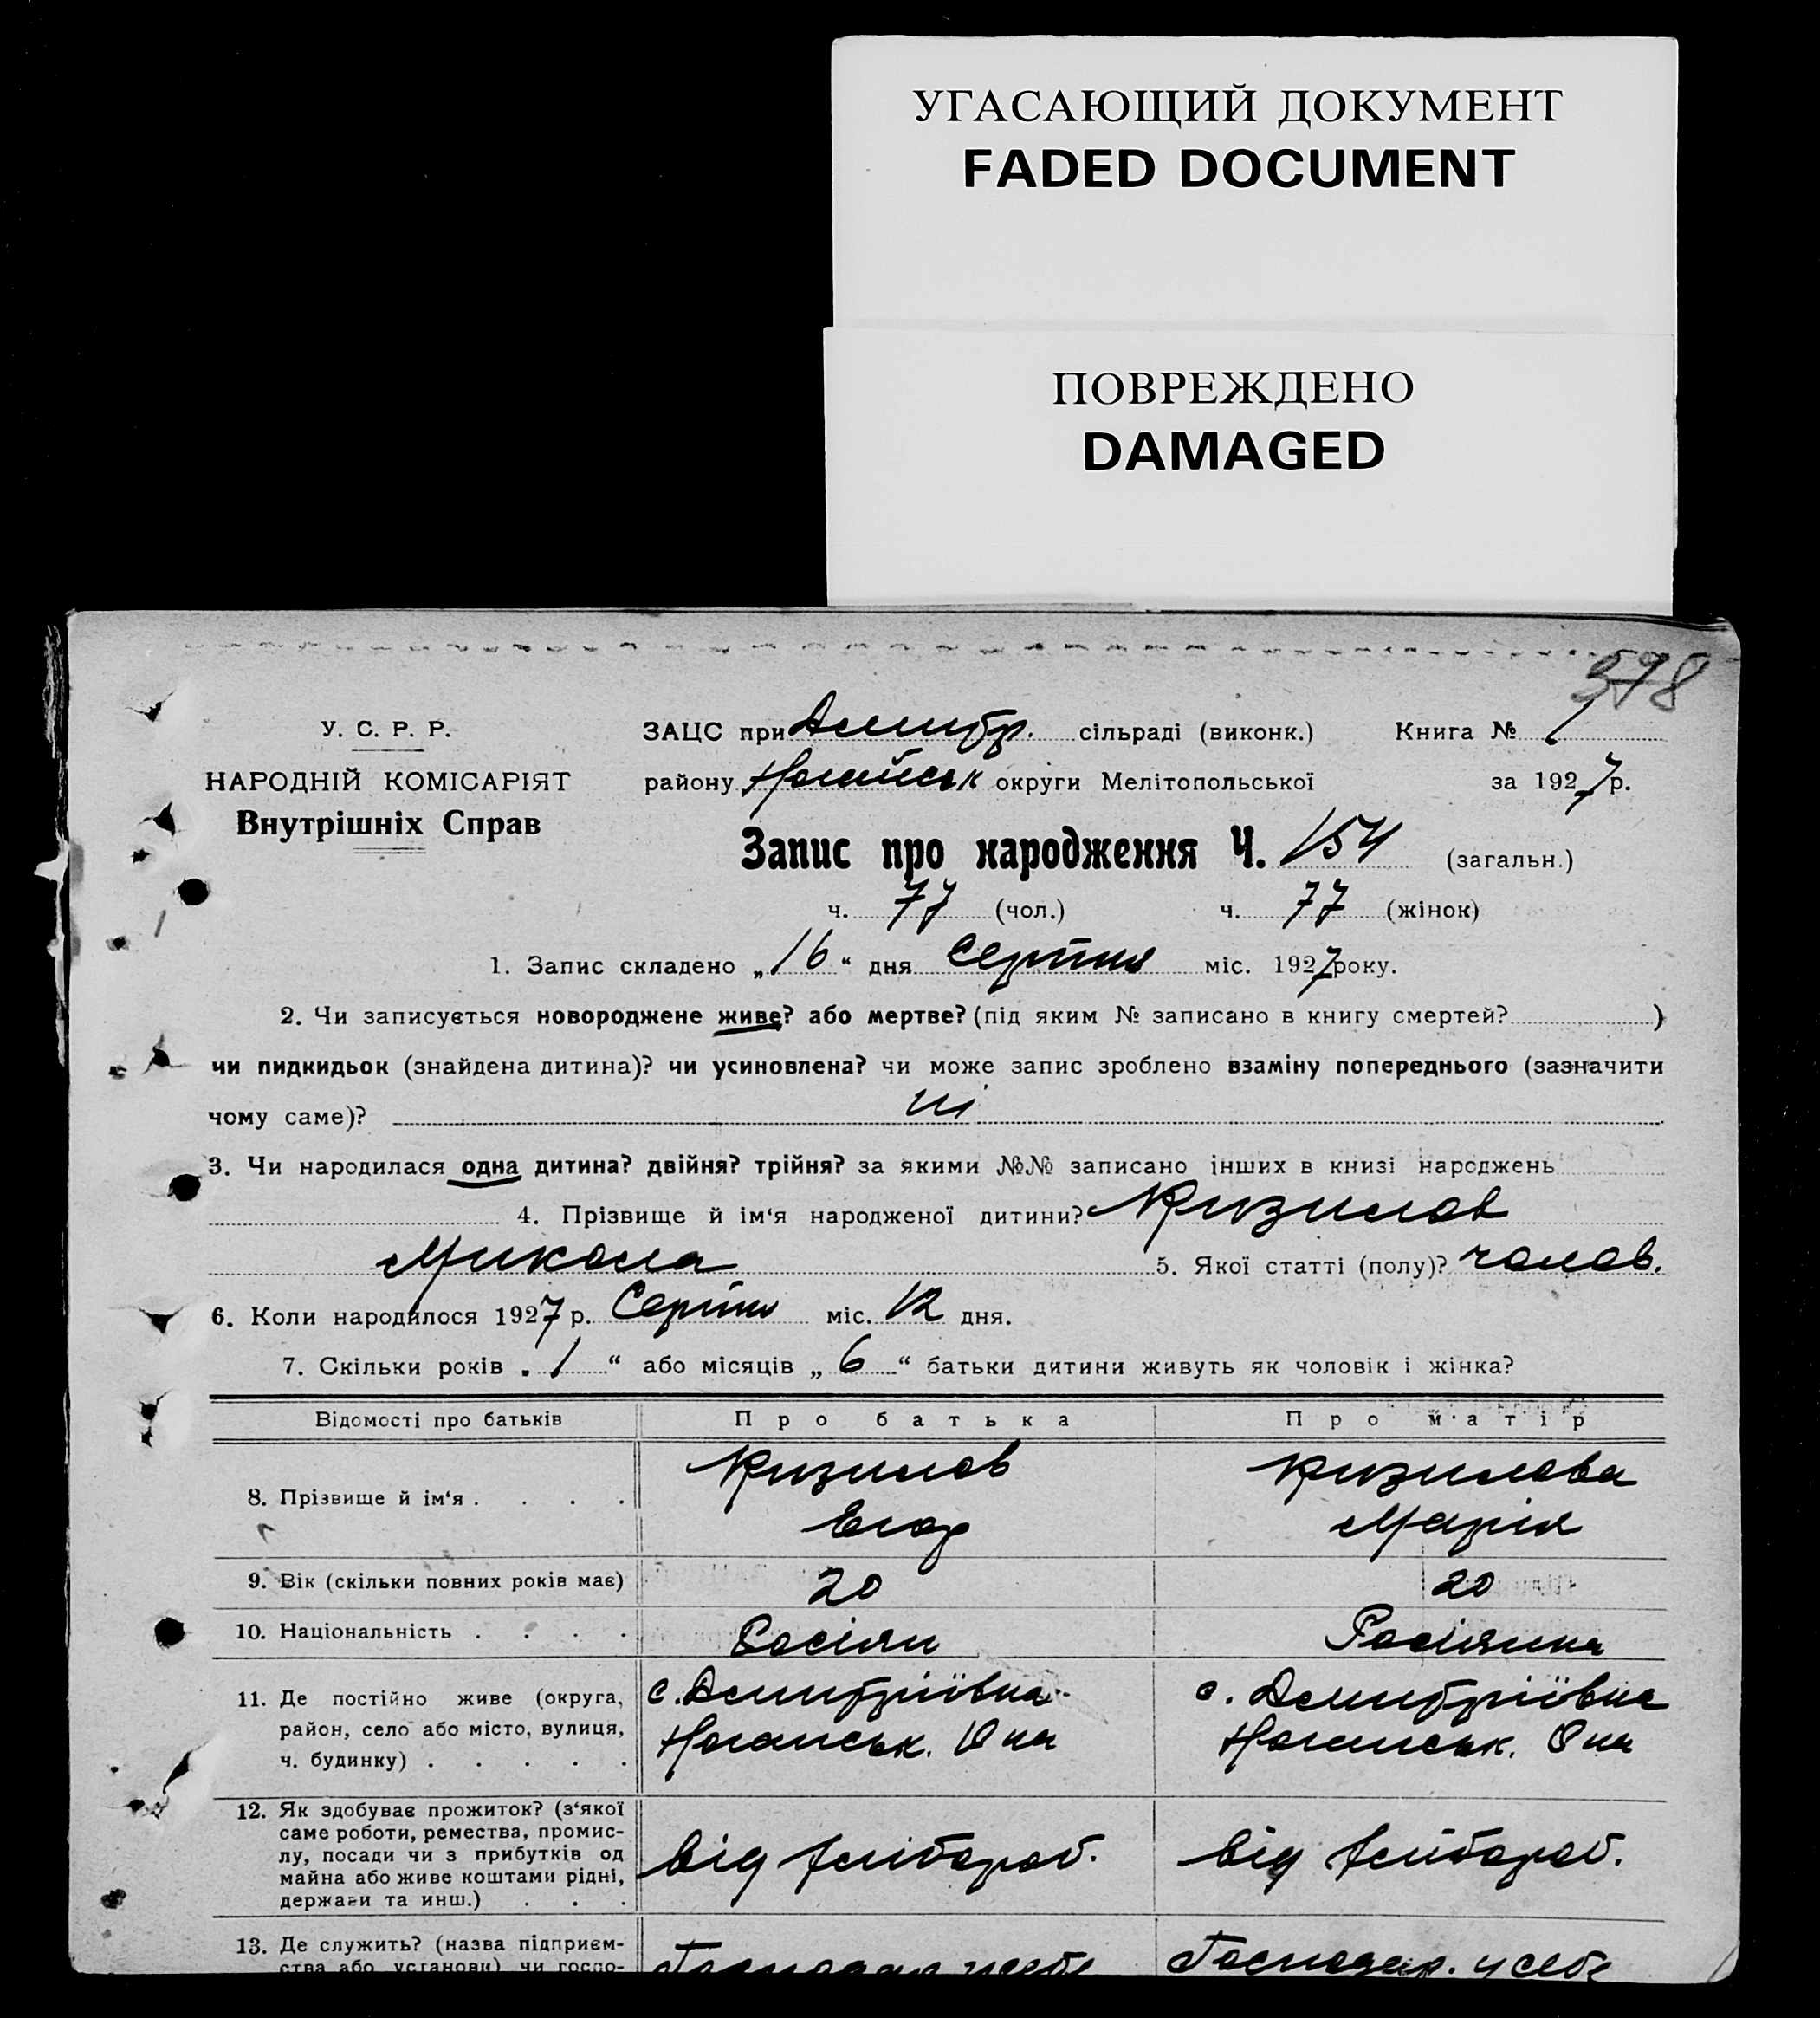 УГАСАЮЩИЙ ДОКУМЕНТ
FADED DOCUMENT
ПОВРЕЖДЕНО
DAMAGED
598
У. С. Р. Р.
НАРОДНІЙ КОМІСАРІЯТ
Внутрішніх Справ
ЗАЦС при Дмитр. сільраді (виконк.) Книга № 1
району Ногайськ округи Мелітопольської за 1927 р.
Запис про народження Ч. 154 (загальн.)
ч. 77 (чол.) ч. 77 (жінок)
1. Запис складено „16“ дня Серпня міс. 1927 року.
2. Чи записується новороджене живе? або мертве? (під яким № записано в книгу смертей? )
чи пидкидьок (знайдена дитина)? чи усиновлена? чи може запис зроблено взаміну попереднього (зазначити
чому саме)? ні
3. Чи народилася одна дитина? двійня? трійня? за якими №№ записано інших в книзі народжень
4. Прізвище й ім‘я народженої дитини? Кизилов
Микола 5. Якої статті (полу)? чолов.
6. Коли народилося 1927 р. Серпня міс. 12 дня.
7. Скільки років „1“ або місяців „6“ батьки дитини живуть як чоловік і жінка?
Відомості про батьків Про батька Про матір
8. Прізвище й ім‘я . . . . Кизилов Егор Кизилова Марія
9. Вік (скільки повних років має) 20 20
10. Національність . . . . Росіян Росіянка
11. Де постійно живе (округа, с. Дмитріївка с. Дмитріївка
район, село або місто, вулиця, Ногайськ. Р на Ногайськ. Р на
ч. будинку) . . . . .
12. Як здобуває прожиток? (з‘якої
саме роботи, ремества, промис-
лу, посади чи з прибутків од від хлібороб. від хлібороб.
майна або живе коштами рідні,
держави та инш.) . . .
13. Де служить? (назва підприєм- Господар. у себе Господар. у себе
ства або установи) чи госпо-